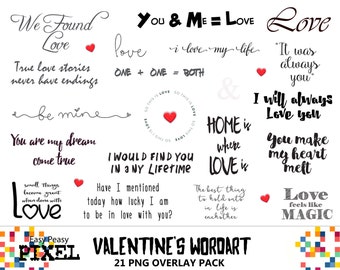 We Found
Love
You & Me = Love
Love
love
i love my life
"It was
always
you"
True love stories
never have endings
ONE + ONE = BOTH
&
be mine
I will always
Love you
You are my dream
come true
HOME is
where
LOVE is
You make
my heart
melt
I WOULD FIND YOU
IN ANY LIFETIME
small things
become great
when done with
Love
Have I mentioned
today how lucky I am
to be in love with you?
The best thing
to hold onto
in life is
eachother
Love
feels like
MAGIC
Easy Peasy
PIXEL
VALENTINE'S WORDART
21 PNG OVERLAY PACK